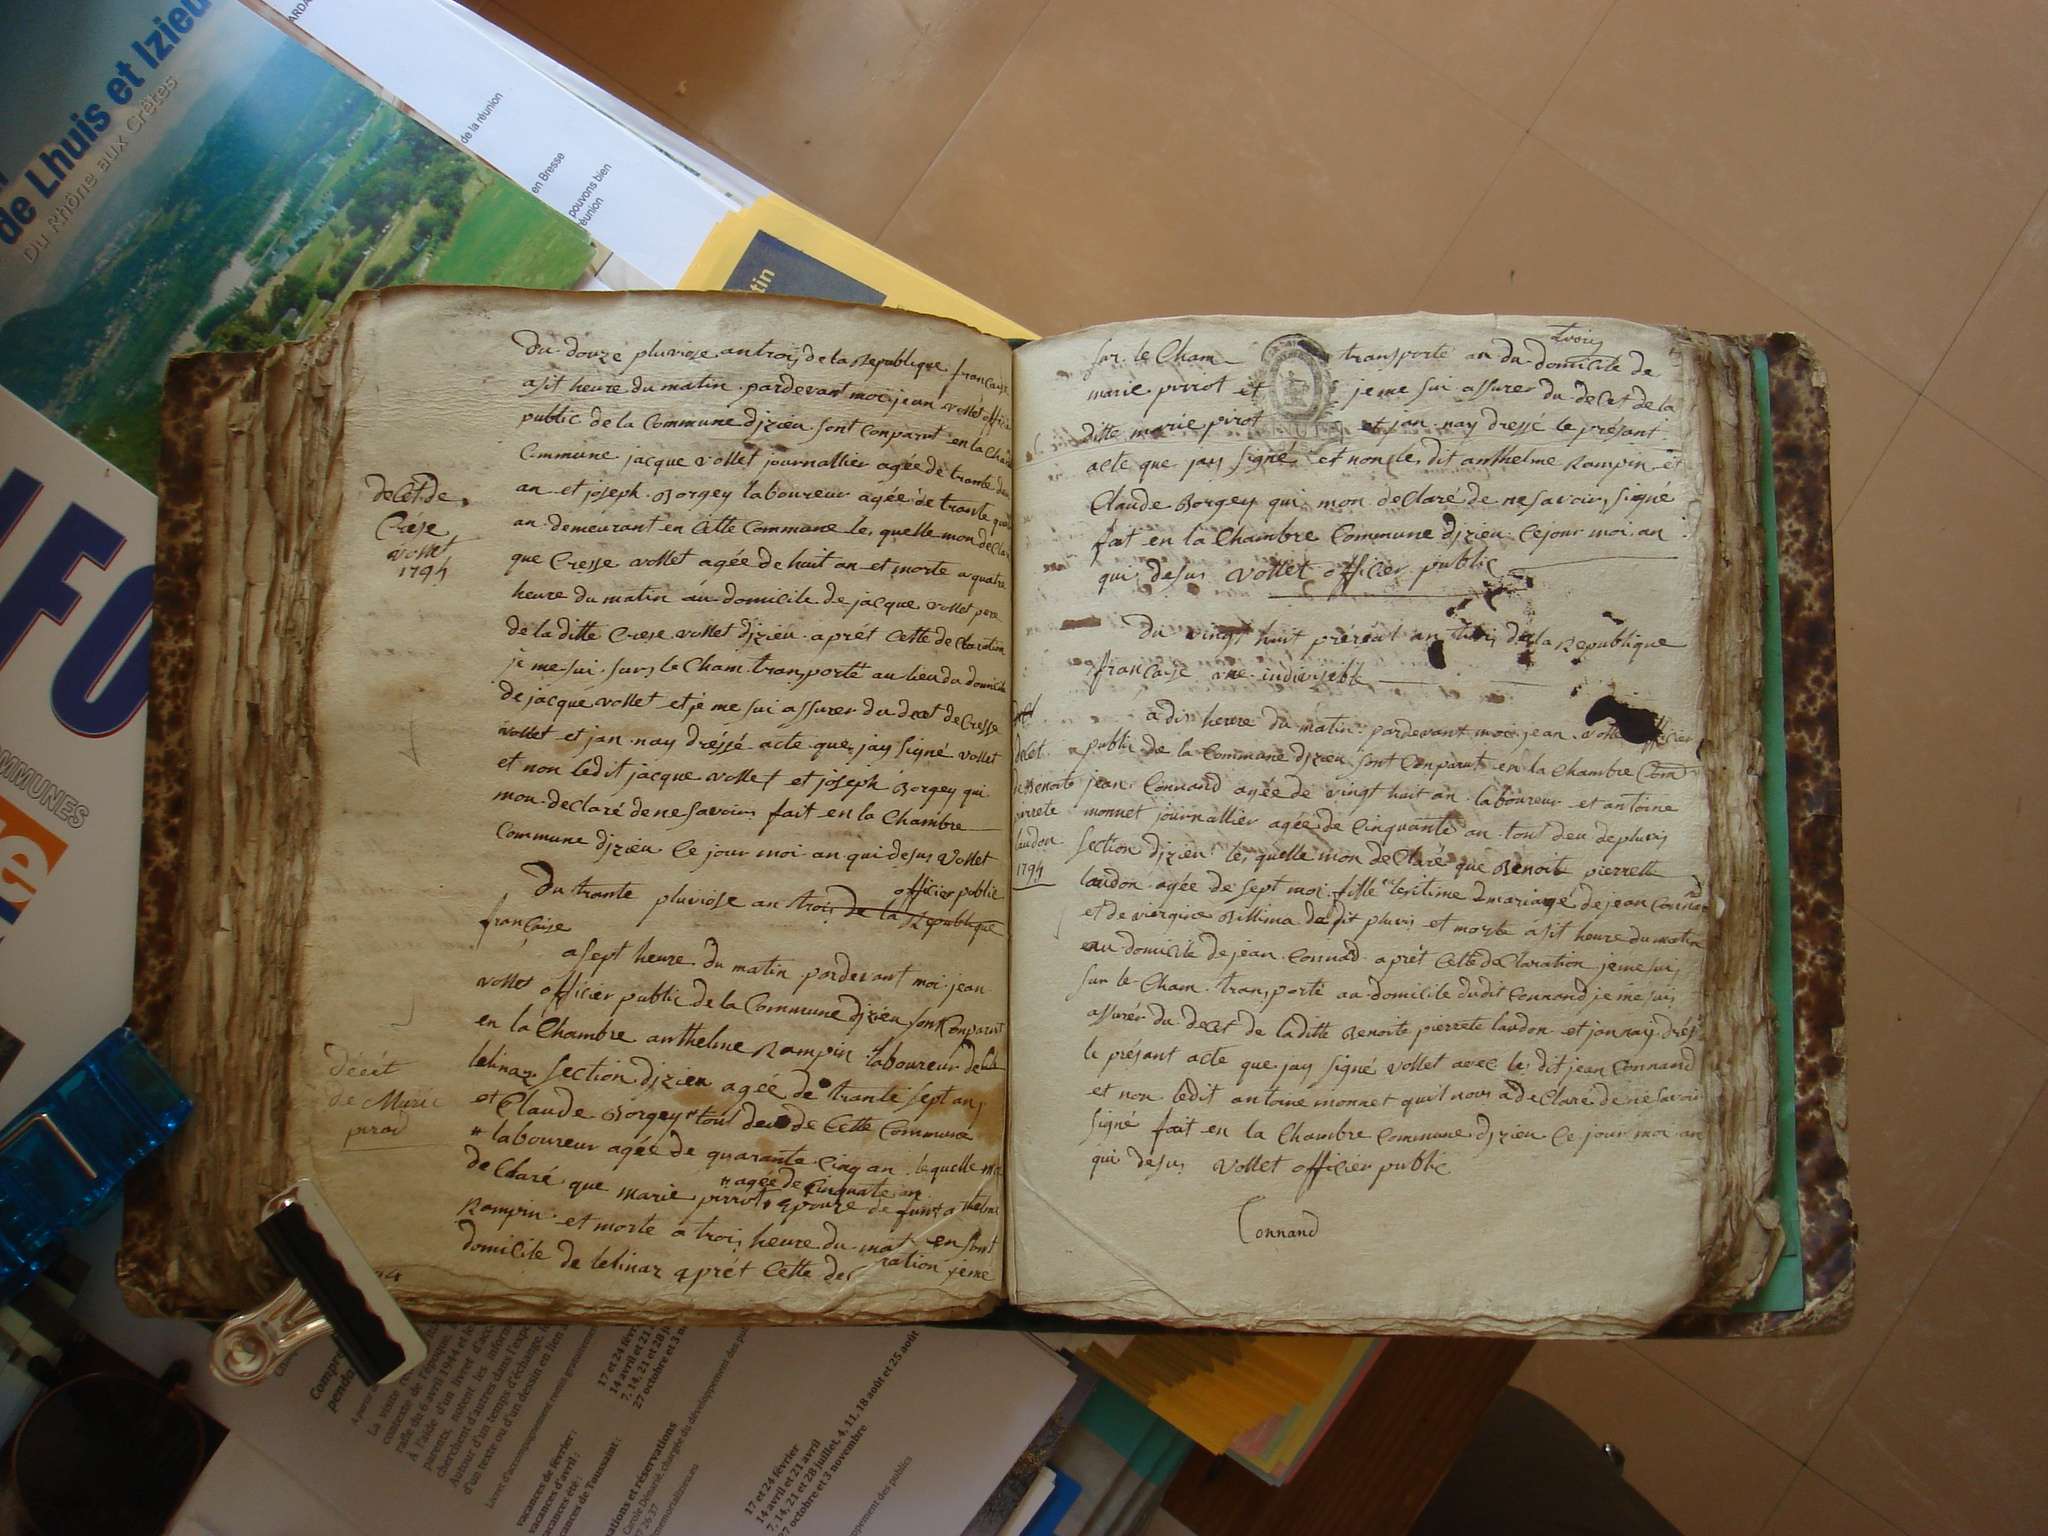 de Lhuis et Izieu
Du Rhône aux Crêtes
de la réunion
en Bresse
pouvons bien
réunion
tin
MMUNES
Du douze pluviose an trois de la Republique française
a sit heure du matin pardevant moi jean vollet officier
public de la Commune dizieu sont Conparut en la Cha
Commune jacque vollet journallier agée de trante deu
an et joseph Borgey laboureur agée de trante
an demeurant en Cette Commune les quelle mon decla
que Cresse vollet agée de huit an et morte a quatre
heure du matin au domicile de jacque vollet pere
de la ditte Crese vollet dizieu aprét Cette declaration
je me sui surs le Cham transporté au lieu du domicile
de jacque vollet et je me sui assurer du decet de Cresse
vollet et jan nay dréssé acte que jay signé vollet
et non ledit jacque vollet et joseph Borgey qui
mon declaré de ne savoirs fait en la Chambre
Commune dizieu Ce jour moi an qui desus vollet
officier public
decet de
Crése
vollet
1794
Du trante pluviose an trois de la Republique
française
a sept heure du matin pardevant moi jean
vollet officier public de la Commune dizieu sont Conparut
en la Chambre anthelme Rampin laboureur de
lelinaz section dizieu agée de trante sept ans
et Claude Borgey " tout deu de Cette Commune
" laboureur agée de quarante Cinq an lequelle
declaré que marie pirrot " epouze de
" agée de Cinquate an
Rampin et morte a trois heure du mat en sont
domicile de lelinaz aprét Cette de ration jeme
décét
de Marie
pirod
sur le Cham transporté au du domicile de
marie pirrot et je me sui assurer du decet de la
ditte marie pirot et jan nay dressé le présant
acte que jay signé et non les dit anthelme Rampin et
Claude Borgey qui mon declaré de ne savoirs signé
fait en la Chambre Commune dizieu Ce jour moi an
qui desus vollet officier public
Du vingt huit préreal an trois de la Republique
française une indivisible
a dis heure du matin pardevant moi jean officier
public de la Commune dizieu sont Conparut en la Chambre Com
jean Connand agée de vingt huit an laboureur et antoine
monnet journallier agée de Cinquante an tout deu de pluvis
section dizieu les quelle mon declaré que Benoite pierrette
laudon agée de sept moi fille lesitime de mariage de jean Connand
et de viergine Billima dudit pluvis et morte a sit heure du matin
au domicile de jean Connad aprét Cette declaration je me suis
sur le Cham transporté au domicile dudit Connand je me suis
assurér du decet de laditte Benoite pierrete laudon et jan nay drés
le présant acte que jay signé vollet avec les dit jean Connand
et non ledit antoine monnet quil nous a declaré de ne savoir
signé fait en la Chambre Commune dizieu Ce jour moi an
qui desus vollet officier public
Connand
decet
de Benoite
pirrete
laudon
1794
17 et 24 février
14 avril et 21 avril
7, 14, 21 et 28 juillet, 4, 11, 18 août et 25 août
27 octobre et 3 novembre
vacances de février :
vacances d'avril :
vacances été :
vacances de Toussaint :